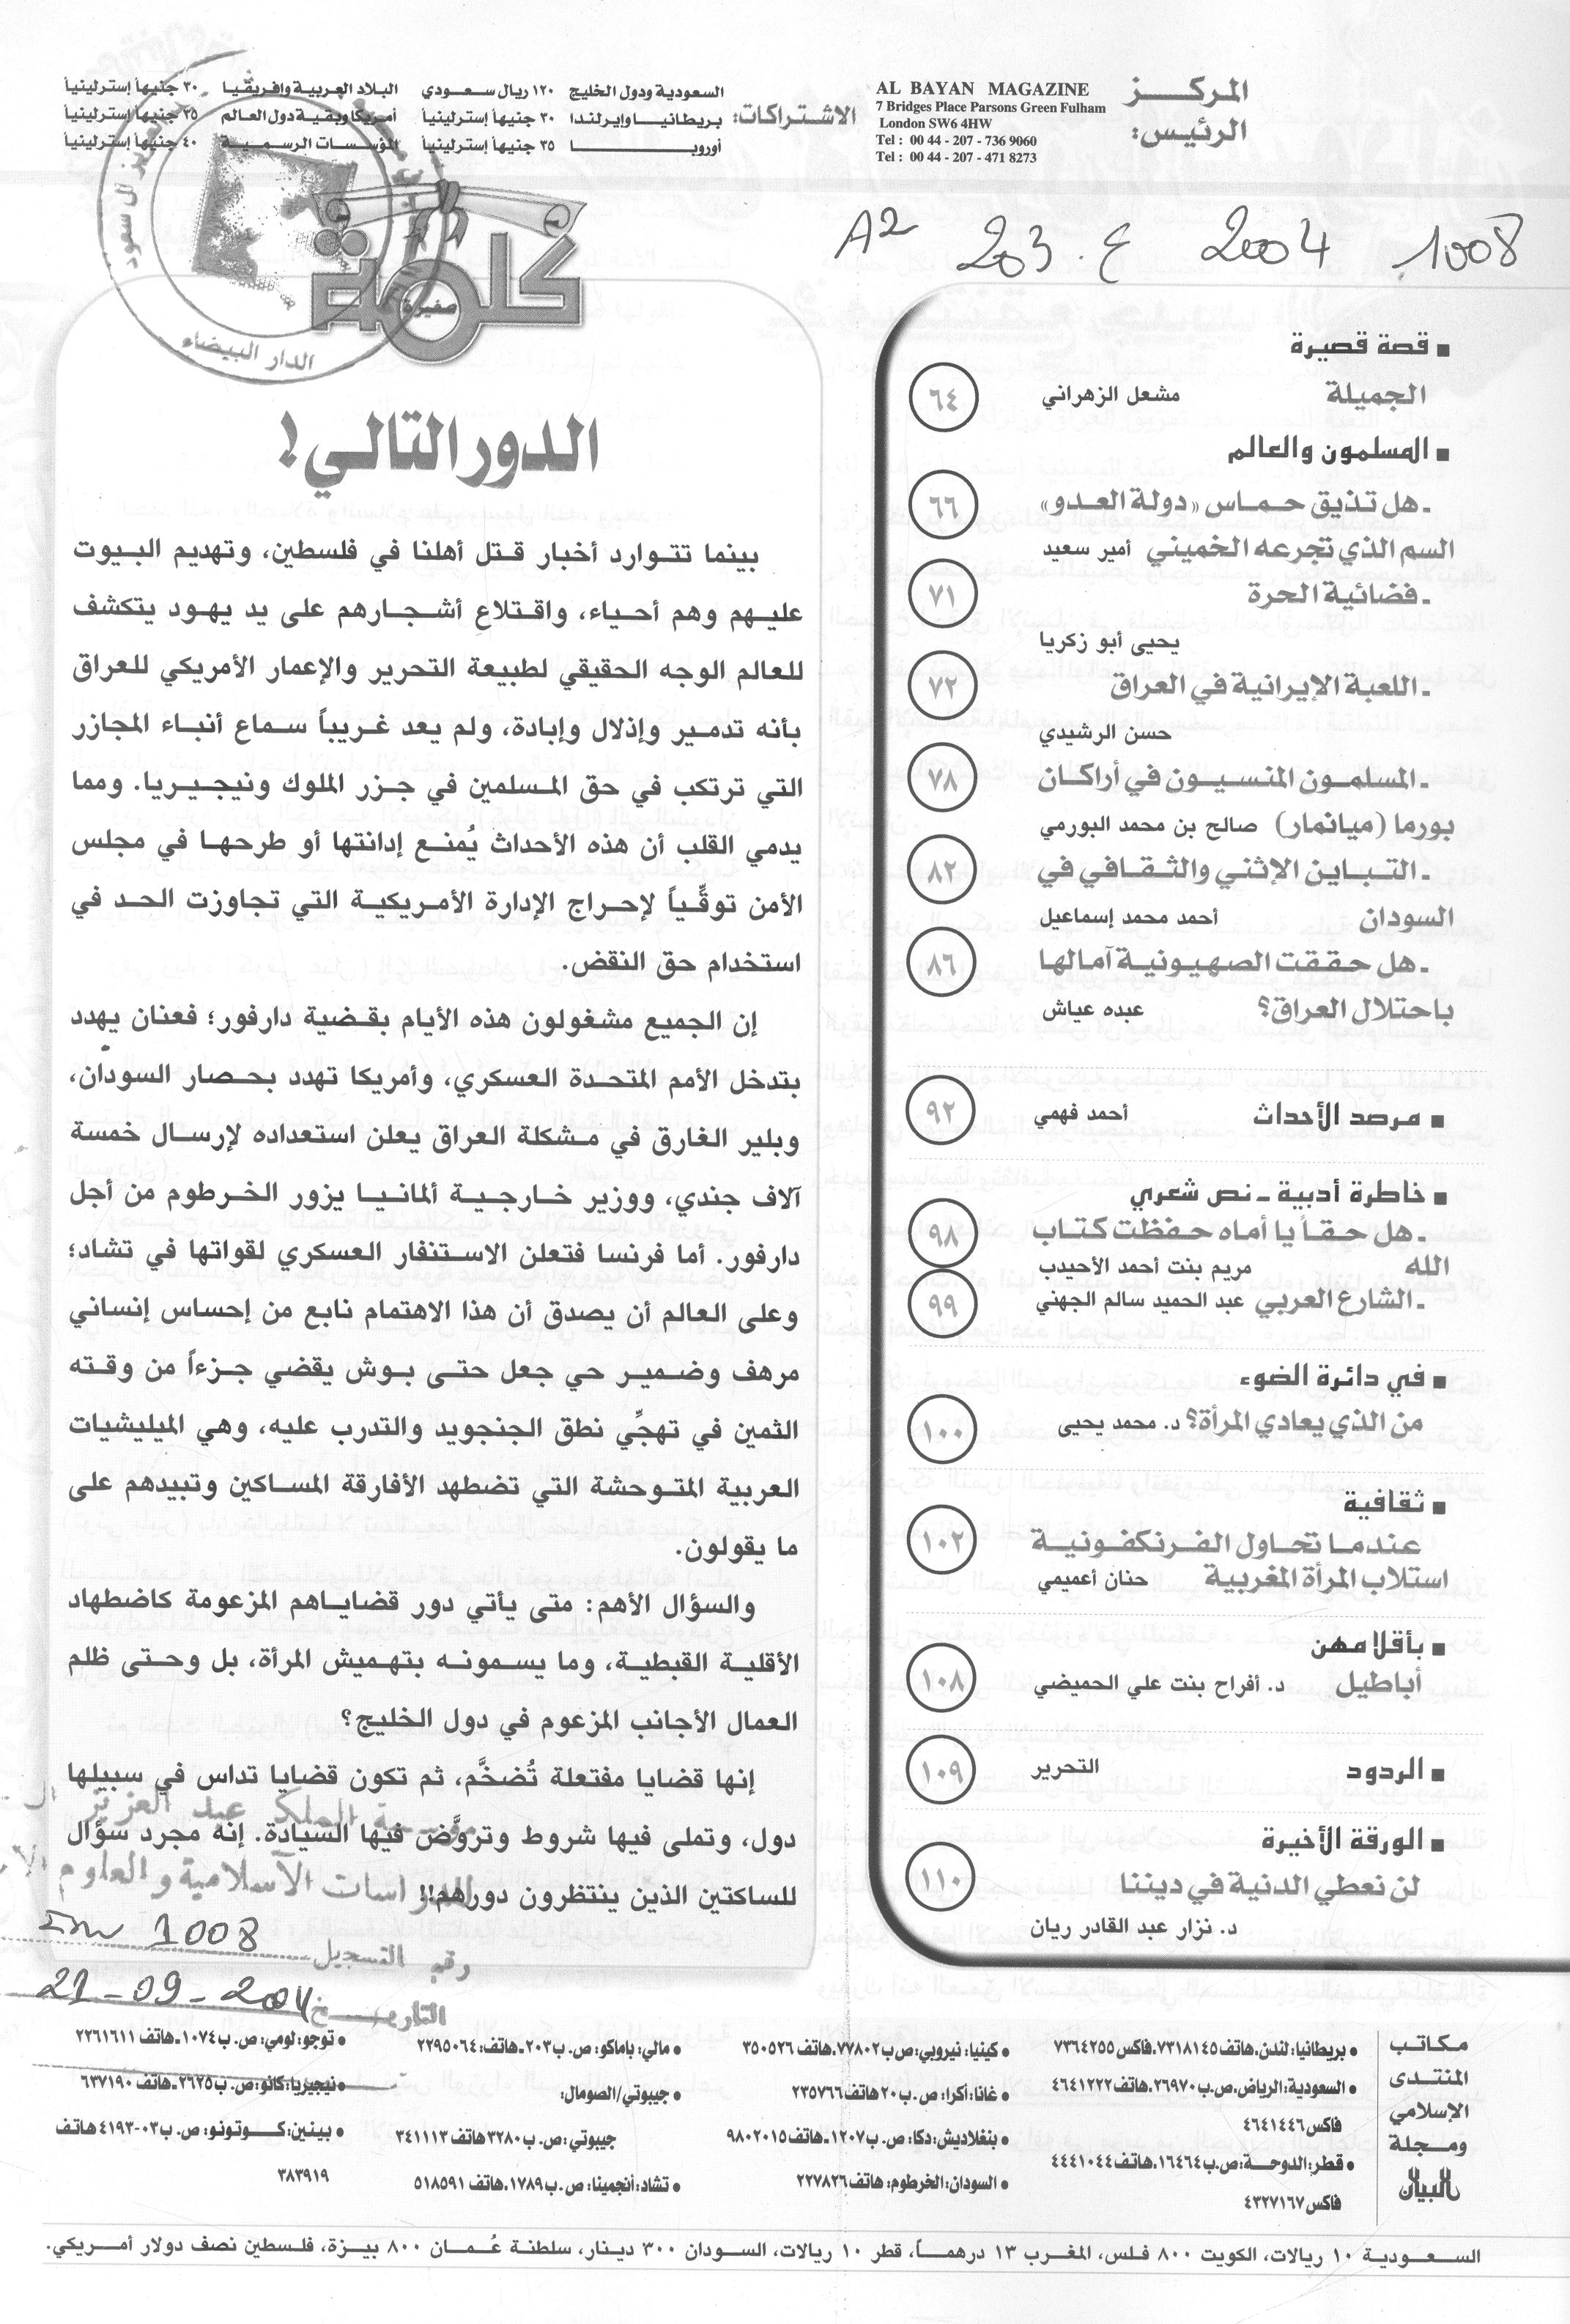 المركــز
الرئيس:
AL BAYAN MAGAZINE
7 Bridges Place Parsons Green Fulham
London SW6 4HW
Tel : 00 44 - 207 - 736 9060
Tel : 00 44 - 207 - 471 8273
الاشتراكات:
السعودية ودول الخليج ١٢٠ ريال سعودي
بريطانيا وإيرلندا ٣٠ جنيهاً إسترلينياً
أوروبا ٣٥ جنيهاً إسترلينياً
البلاد العربية وإفريقيا ٣٠ جنيهاً إسترلينياً
أمريكا وبقية دول العالم ٣٥ جنيهاً إسترلينياً
المؤسسات الرسمية ٤٠ جنيهاً إسترلينياً
A2 203.ع 2004 1008
■ قصة قصيرة
الجميلة مشعل الزهراني ٦٤
■ المسلمون والعالم
ـ هل تذيق حماس «دولة العدو» ٦٦
السم الذي تجرعه الخميني أمير سعيد
ـ فضائية الحرة ٧١
يحيى أبو زكريا
ـ اللعبة الإيرانية في العراق ٧٢
حسن الرشيدي
ـ المسلمون المنسيون في أراكان ٧٨
بورما (ميانمار) صالح بن محمد البورمي
ـ التباين الإثني والثقافي في ٨٢
السودان أحمد محمد إسماعيل
ـ هل حققت الصهيونية آمالها ٨٦
باحتلال العراق؟ عبده عياش
■ مرصد الأحداث أحمد فهمي ٩٢
■ خاطرة أدبية ـ نص شعري
ـ هل حقاً يا أماه حفظت كتاب ٩٨
الله مريم بنت أحمد الأحيدب
ـ الشارع العربي عبد الحميد سالم الجهني ٩٩
■ في دائرة الضوء
من الذي يعادي المرأة؟ د. محمد يحيى ١٠٠
■ ثقافية
عندما تحاول الفرنكفونية ١٠٢
استلاب المرأة المغربية حنان أعميمي
■ بأقلامهن
أباطيل د. أفراح بنت علي الحميضي ١٠٨
■ الردود التحرير ١٠٩
■ الورقة الأخيرة
لن نعطي الدنية في ديننا ١١٠
د. نزار عبد القادر ريان
كلمة
صغيرة
آل سعود
الدار البيضاء
الدور التالي!
بينما تتوارد أخبار قتل أهلنا في فلسطين، وتهديم البيوت
عليهم وهم أحياء، واقتلاع أشجارهم على يد يهود يتكشف
للعالم الوجه الحقيقي لطبيعة التحرير والإعمار الأمريكي للعراق
بأنه تدمير وإذلال وإبادة، ولم يعد غريباً سماع أنباء المجازر
التي ترتكب في حق المسلمين في جزر الملوك ونيجيريا. ومما
يدمي القلب أن هذه الأحداث يُمنع إدانتها أو طرحها في مجلس
الأمن توقّياً لإحراج الإدارة الأمريكية التي تجاوزت الحد في
استخدام حق النقض.
إن الجميع مشغولون هذه الأيام بقضية دارفور؛ فعنان يهدد
بتدخل الأمم المتحدة العسكري، وأمريكا تهدد بحصار السودان،
وبلير الغارق في مشكلة العراق يعلن استعداده لإرسال خمسة
آلاف جندي، ووزير خارجية ألمانيا يزور الخرطوم من أجل
دارفور. أما فرنسا فتعلن الاستنفار العسكري لقواتها في تشاد؛
وعلى العالم أن يصدق أن هذا الاهتمام نابع من إحساس إنساني
مرهف وضمير حي جعل حتى بوش يقضي جزءاً من وقته
الثمين في تهجّي نطق الجنجويد والتدرب عليه، وهي الميليشيات
العربية المتوحشة التي تضطهد الأفارقة المساكين وتبيدهم على
ما يقولون.
والسؤال الأهم: متى يأتي دور قضاياهم المزعومة كاضطهاد
الأقلية القبطية، وما يسمونه بتهميش المرأة، بل وحتى ظلم
العمال الأجانب المزعوم في دول الخليج؟
إنها قضايا مفتعلة تُضخَّم، ثم تكون قضايا تداس في سبيلها
دول، وتملى فيها شروط وتروَّض فيها السيادة. إنه مجرد سؤال
للساكتين الذين ينتظرون دورهم!!
مؤسسة الملك عبد العزيز ال
للدراسات الاسلامية و العلوم
رقم التسجيل 1008
التاريخ 21-09-2004
مكاتب
المنتدى
الإسلامي
ومجلة
البيان
● بريطانيا: لندن، هاتف ٧٣١٨١٤٥. فاكس ٧٣٦٤٢٥٥
● السعودية: الرياض، ص.ب ٢٦٩٧٠. هاتف ٤٦٤١٢٢٢
فاكس ٤٦٤١٤٤٦
● قطر: الدوحة: ص.ب ١٦٤٦٤، هاتف ٤٤٤١٠٤٤
فاكس ٤٣٢٧١٦٧
● كينيا: نيروبي: ص ب ٧٧٨٠٢. هاتف ٣٥٠٥٢٦
● غانا: أكرا: ص.ب ٢٠ هاتف ٢٣٥٧٦٦
● بنغلاديش: دكا: ص.ب ١٢٠٧ـ هاتف ٩٨٠٢٠١٥
● السودان: الخرطوم: هاتف ٢٢٧٨٢٦
● مالي: باماكو: ص.ب ٢٠٣ـ هاتف: ٢٢٩٥٠٦٤
● جيبوتي/الصومال:
جيبوتي: ص.ب ٣٢٨٠ هاتف ٣٤١١١٣
● تشاد: أنجمينا: ص.ب ١٧٨٩. هاتف ٥١٨٥٩١
● توجو: لومي: ص.ب ١٠٧٤ـ هاتف ٢٢٦١٦١١
● نيجيريا: كانو: ص.ب ٢٦٢٥ـ هاتف ٦٣٧١٩٠
● بينين: كوتونو: ص.ب ٠٣-٤١٩٣ هاتف
٣٨٣٩١٩
السعودية ١٠ ريالات، الكويت ٨٠٠ فلس، المغرب ١٣ درهماً، قطر ١٠ ريالات، السودان ٣٠٠ دينار، سلطنة عُمان ٨٠٠ بيزة، فلسطين نصف دولار أمريكي.